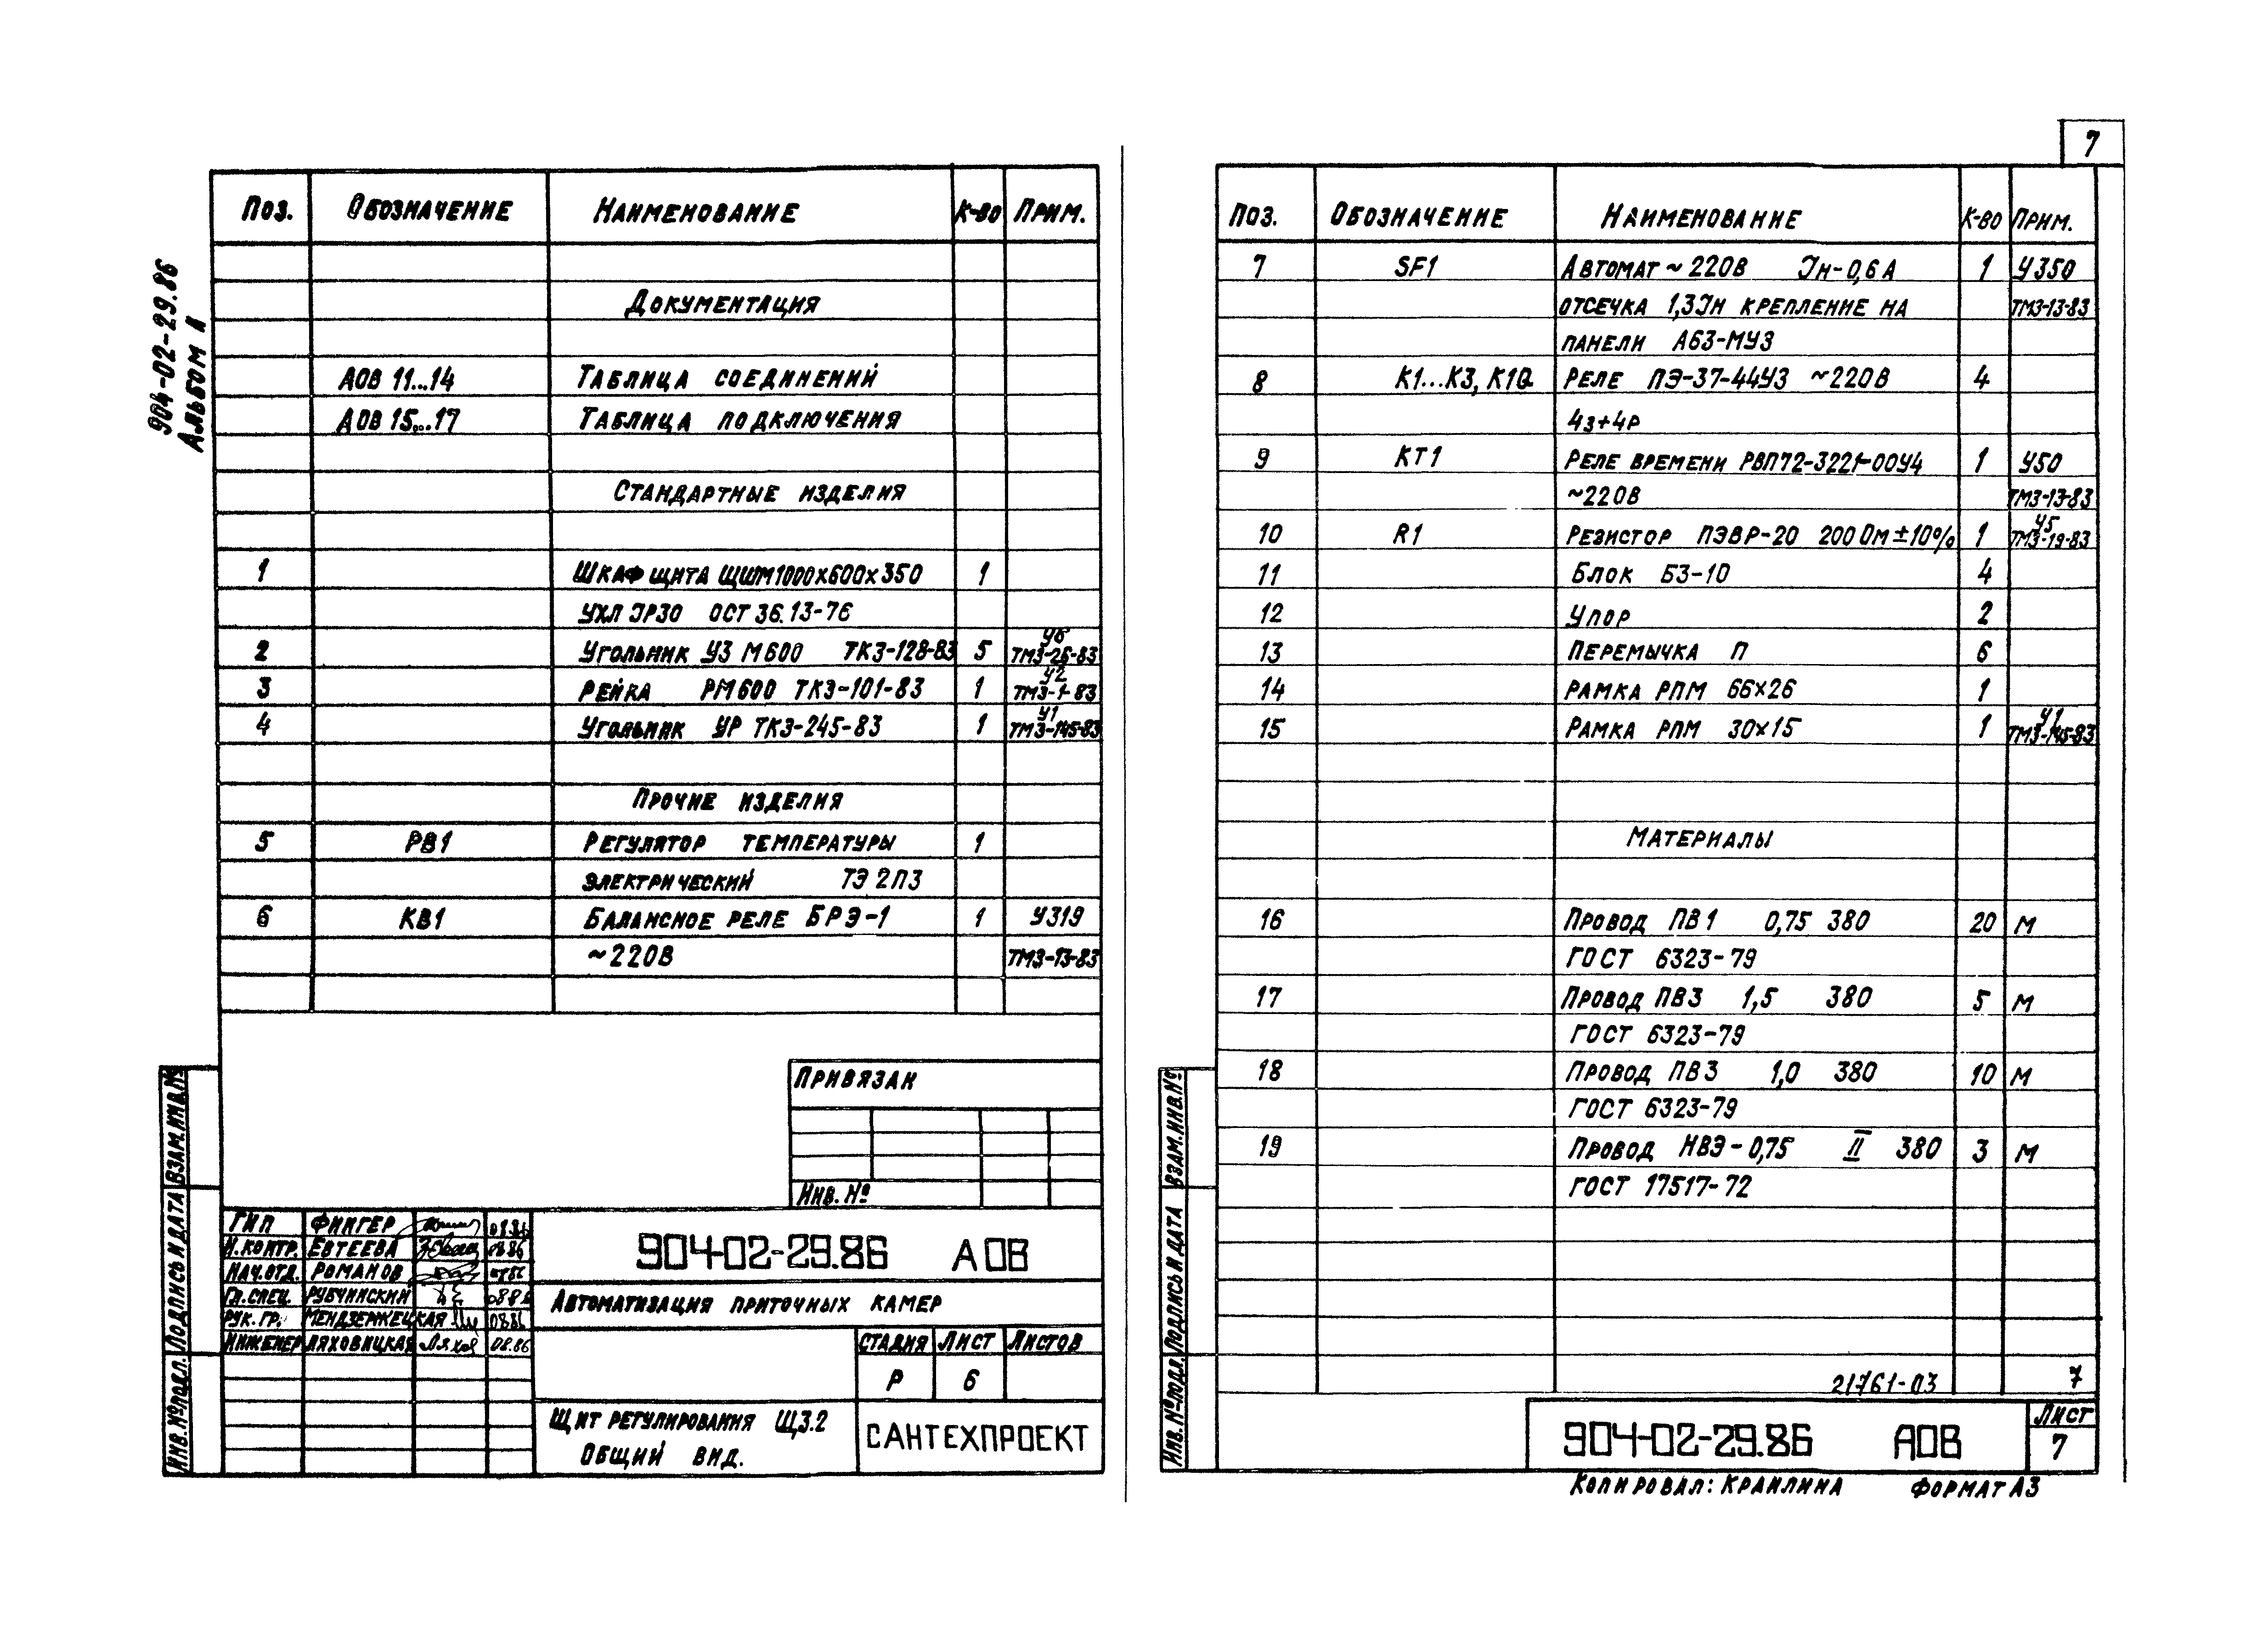 904-02-29.86
Альбом 1
Поз. Обозначение Наименование К-во Прим.
Документация
АОВ 11...14 Таблица соединений
АОВ 15...17 Таблица подключения
Стандартные изделия
1 Шкаф щита ЩШМ1000х600х350 1
УХЛ IP30 ОСТ 36.13-76
2 Угольник УЗ М600 ТКЗ-128-83 5 У6 ТМ3-26-83
3 Рейка РМ600 ТКЗ-101-83 1 У2 ТМ3-1-83
4 Угольник УР ТКЗ-245-83 1 У1 ТМ3-145-83
Прочие изделия
5 РВ1 Регулятор температуры 1
электрический ТЭ 2ПЗ
6 КВ1 Балансное реле БРЭ-1 1 У319
~220В ТМ3-13-83
Привязан
Инв. №
ГИП Фингер 08.86
Н.контр. Евтеева 08.86
Нач.отд. Романов
Гл.спец. Рубчинский 08.86
Рук.гр. Мендзержецкая 08.86
Инженер Ляховицкая Ляхов 08.86
904-02-29.86 АОВ
Автоматизация приточных камер
Стадия Лист Листов
Р 6
Щит регулирования Щ3.2
Общий вид.
САНТЕХПРОЕКТ
Взам.инв.№
Подпись и дата
Инв.№подл.
7
Поз. Обозначение Наименование К-во Прим.
7 SF1 Автомат ~ 220В Iн-0,6А 1 У350
отсечка 1,3Iн крепление на ТМ3-13-83
панели А63-МУ3
8 К1...К3, К1Q Реле ПЭ-37-44У3 ~220В 4
4з+4р
9 КТ1 Реле времени РВП72-3221-00У4 1 У50
~220В ТМ3-13-83
10 R1 Резистор ПЭВР-20 200 Ом ±10% 1 У5 ТМ3-19-83
11 Блок БЗ-10 4
12 Упор 2
13 Перемычка П 6
14 Рамка РПМ 66х26 1
15 Рамка РПМ 30х15 1 У1 ТМ3-145-83
Материалы
16 Провод ПВ1 0,75 380 20 м
ГОСТ 6323-79
17 Провод ПВ3 1,5 380 5 м
ГОСТ 6323-79
18 Провод ПВ3 1,0 380 10 м
ГОСТ 6323-79
19 Провод НВЭ-0,75 II 380 3 м
ГОСТ 17517-72
21761-03 7
904-02-29.86 АОВ
Лист
7
Взам.инв.№
Подпись и дата
Инв.№подл.
Копировал: Краилина Формат А3